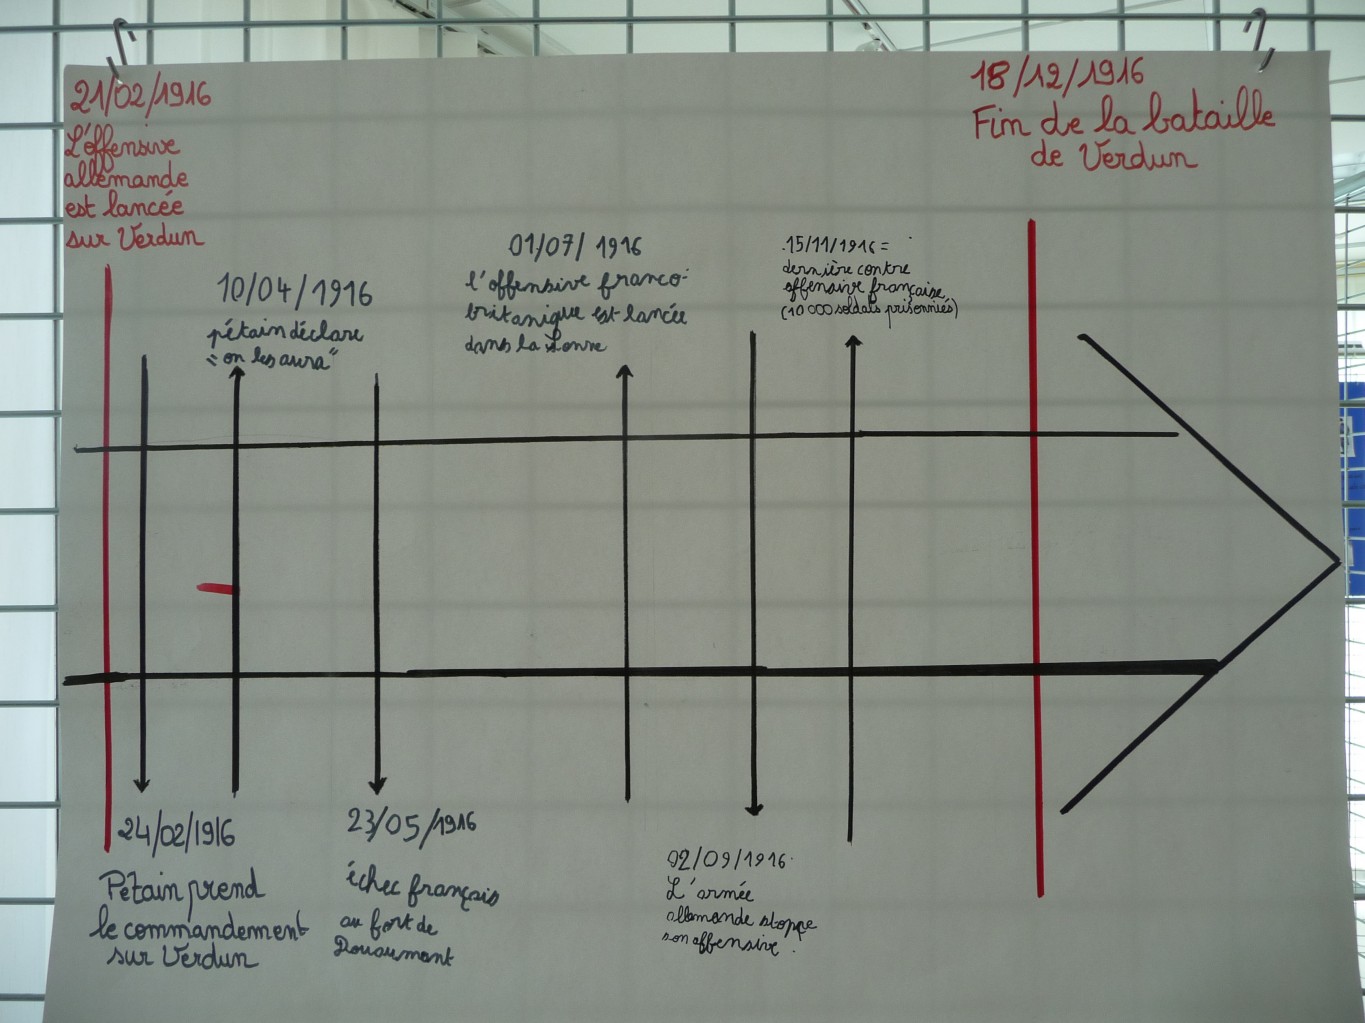 21/02/1916
L'offensive
allemande
est lancée
sur Verdun
18/12/1916
Fin de la bataille
de Verdun
10/04/1916
pétain déclare
"on les aura"
01/07/1916
l'offensive franco-
britanique est lancée
dans la Somme
15/11/1916 =
dernière contre
offensive française
(10 000 soldats prisonniés)
24/02/1916
Pétain prend
le commandement
sur Verdun
23/05/1916
échec français
au fort de
Douaumont
02/09/1916
L'armée
allemande stoppe
son offensive.